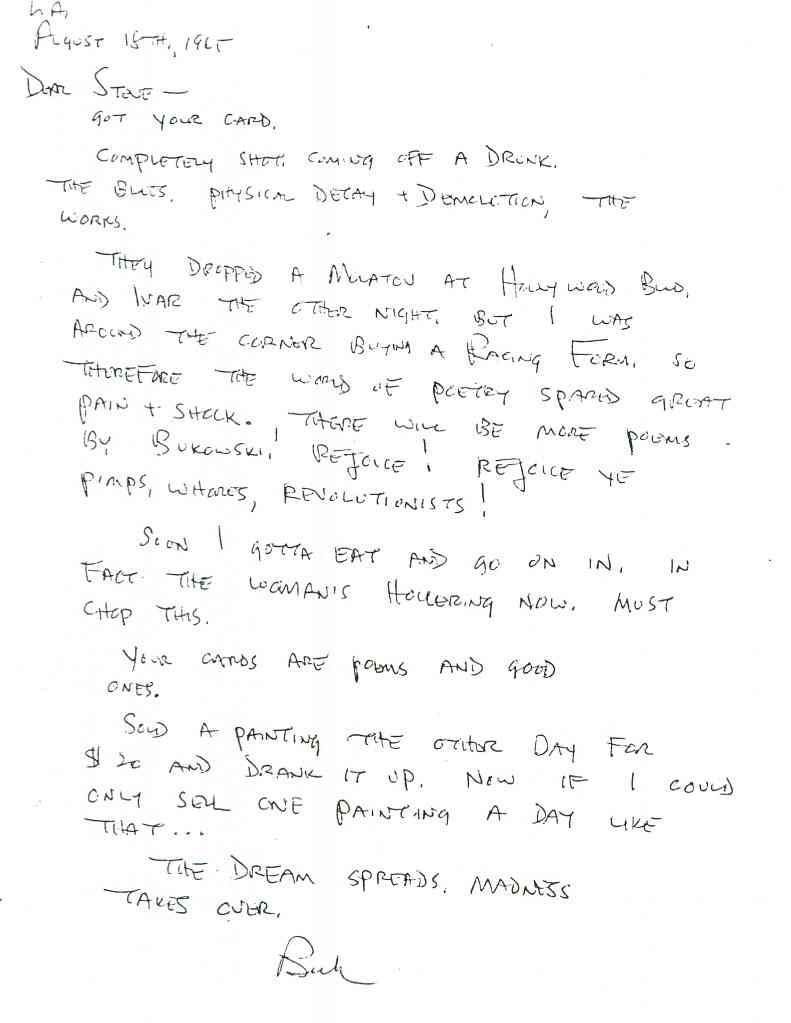 L.A.
August 18th, 1965
Dear Steve —
got your card.
completely shot. coming off a drunk.
the blues. physical decay + demolition, the
works.
They dropped a Molotov at Hollywood Blvd.
and Ivar the other night. but I was
around the corner buying a Racing Form. so
therefore the world of poetry spared great
pain + shock. there will be more poems
by Bukowski! Rejoice! Rejoice ye
pimps, whores, revolutionists!
Soon I gotta eat and go on in. in
fact the woman's hollering now. must
chop this.
Your cards are poems and good
ones.
Sold a painting the other day for
$20 and drank it up. Now if I could
only sell one painting a day like
that...
The dream spreads. madness
takes over.
Buk